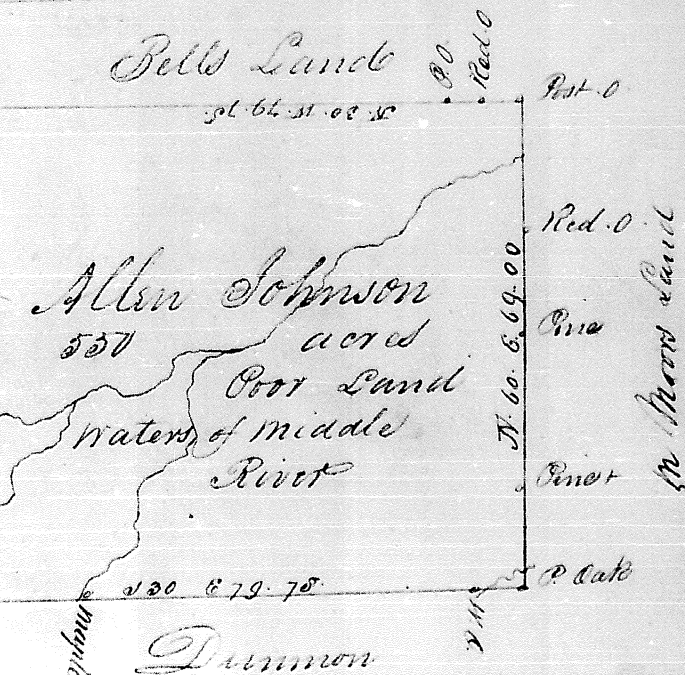 Bells Land
P.O
Red.O
Post.O
N 30 W 79.75
Red.O
Allen Johnson
550 acres
Poor Land
Waters of Middle
River
N. 60. E. 69.00
Pine
Pine +
M Moors Land
S 30 E 79.75
P. Oak
Maple
Dunmon